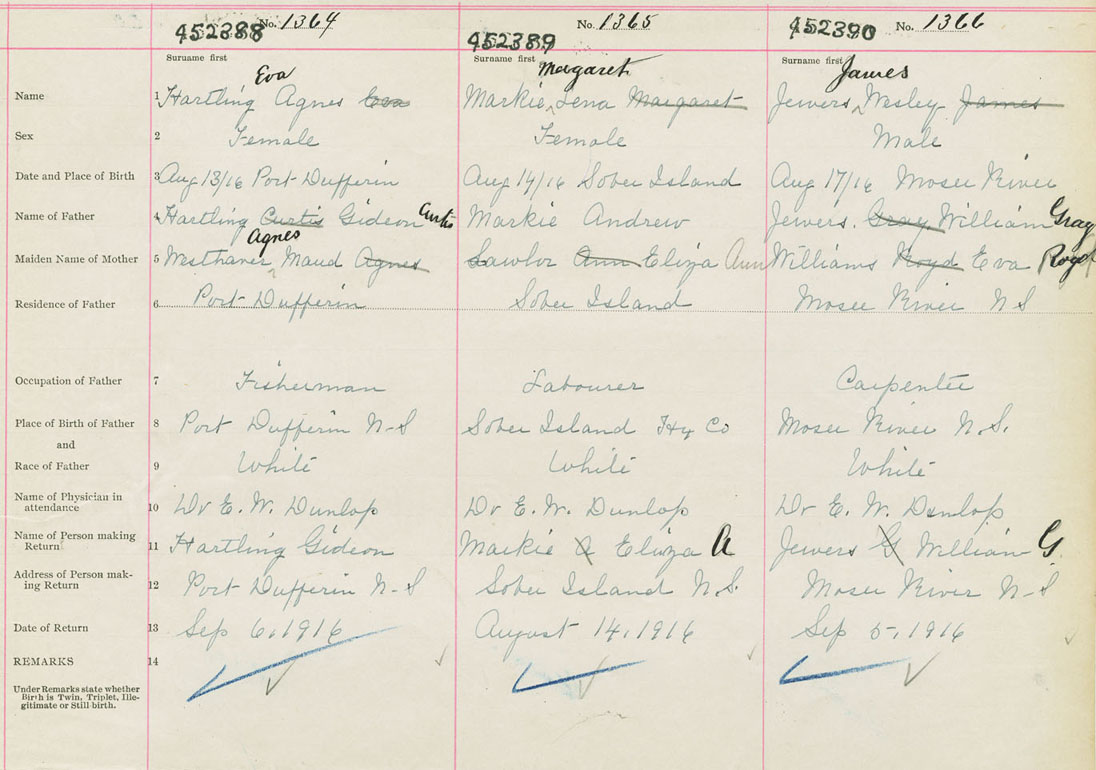 452388 No. 1364 452389 No. 1365 452390 No. 1366
Surname first Surname first Surname first
Eva Margaret James
Name 1 Hartling Agnes Eva Markie, Lena Margaret Jewers, Wesley James
Sex 2 Female Female Male
Date and Place of Birth 3 Aug 13/16 Port Dufferin Aug 14/16 Sober Island Aug 17/16 Moser River
Name of Father 4 Hartling Curtis Gideon Curtis Markie Andrew Jewers. Gray William Gray
Agnes
Maiden Name of Mother 5 Westhaver Maud Agnes Lawlor Ann Eliza Ann Williams Eva
Residence of Father 6 Port Dufferin Sober Island Moser River N S
Occupation of Father 7 Fisherman Labourer Carpenter
Place of Birth of Father 8 Port Dufferin N-S Sober Island Hx Co Moser River N.S.
and
Race of Father 9 White White White
Name of Physician in
attendance 10 Dr E. W. Dunlop Dr E. W. Dunlop Dr E. W. Dunlop
Name of Person making
Return 11 Hartling Gideon Markie A Eliza A Jewers G William G.
Address of Person mak-
ing Return 12 Port Dufferin N-S Sober Island N.S. Moser River N-S
Date of Return 13 Sep 6, 1916 August 14, 1916 Sep 5, 1916
REMARKS 14
Under Remarks state whether
Birth is Twin, Triplet, Ille-
gitimate or Still birth.